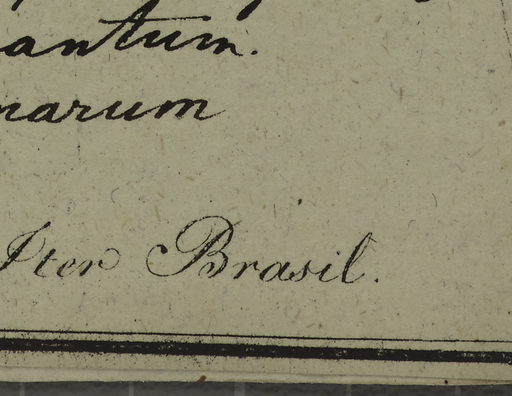 antum.
narum
Iter Brasil.